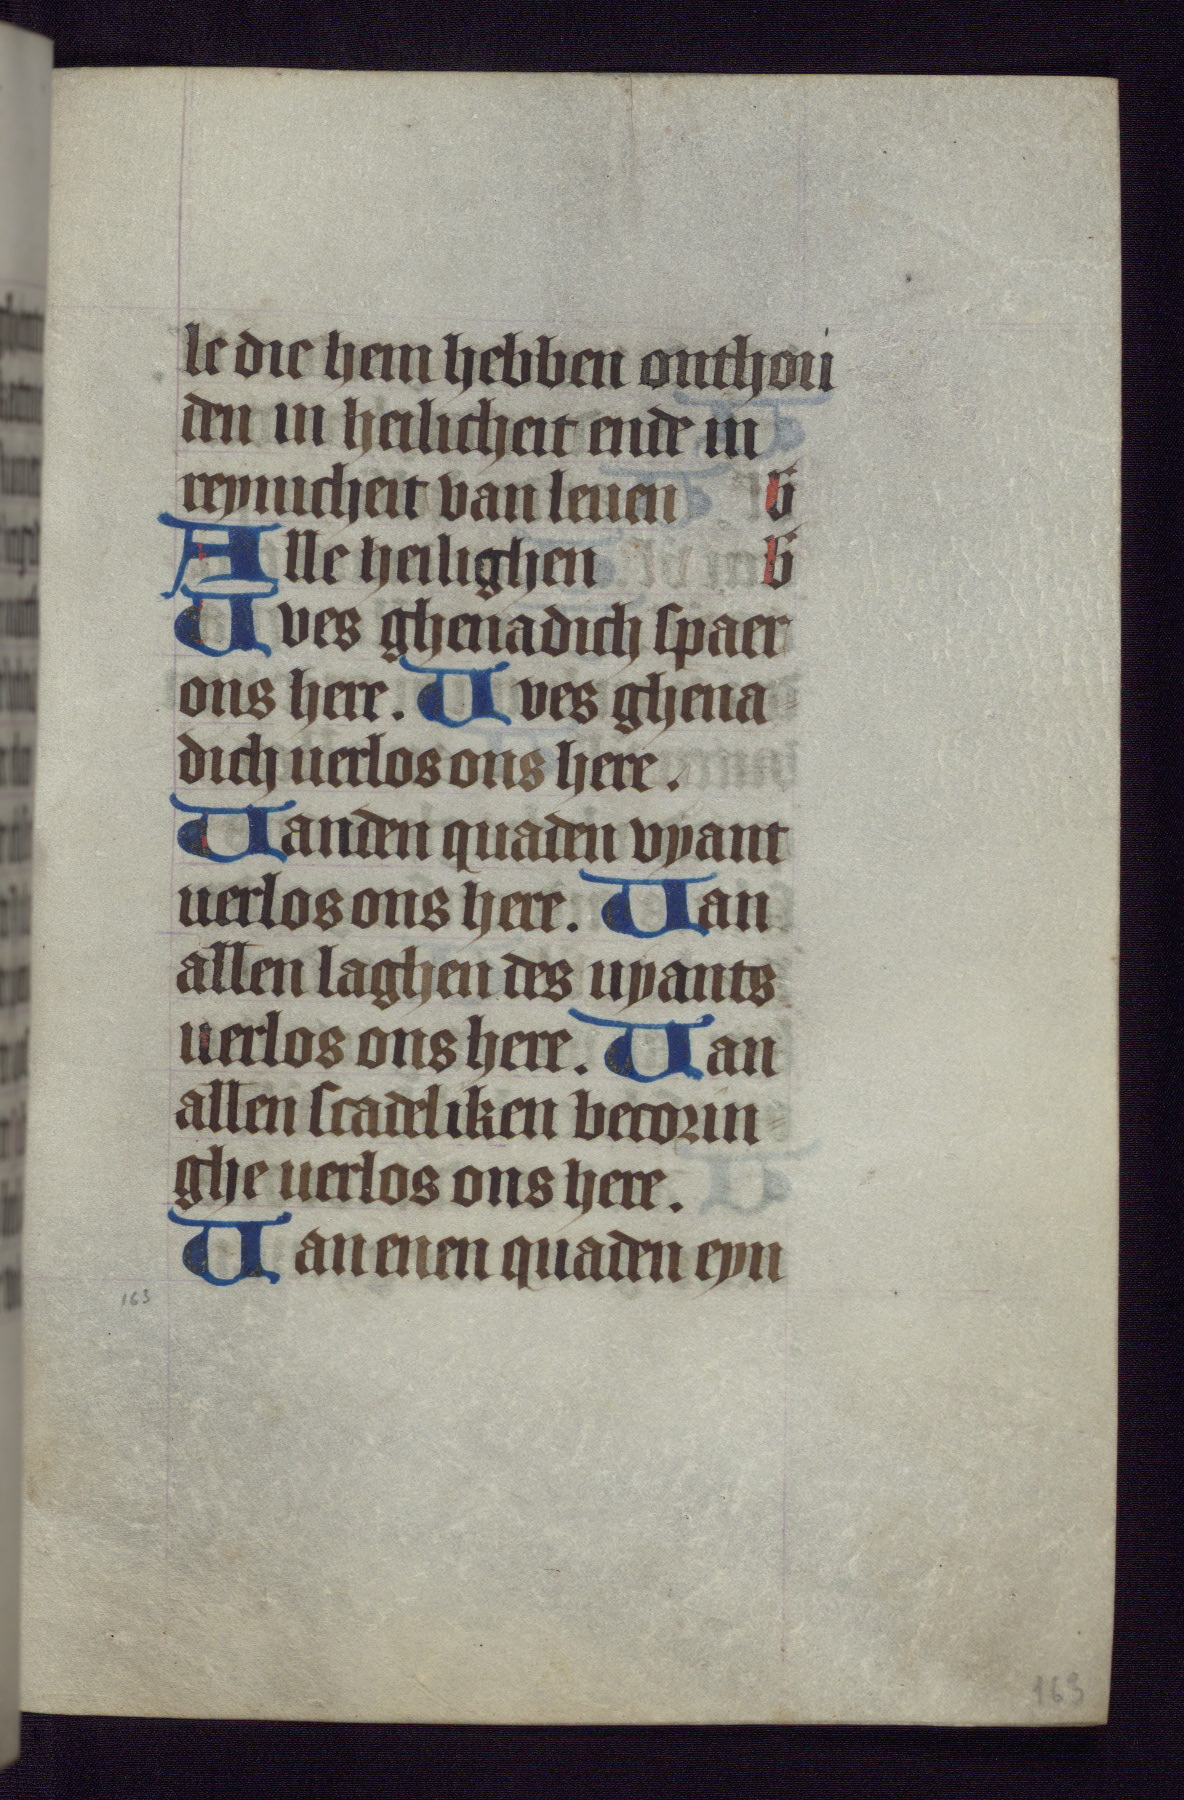 le die hem hebben onthou
den in heilicheit ende in
reynicheit van leuen b
Alle heilighen b
Uves ghenadich spaer
ons here. Uves ghena
dich uerlos ons here.
Uanden quaden vyant
uerlos ons here. Uan
allen laghen des uyants
uerlos ons here. Uan
allen scadeliken becorin
ghe uerlos ons here.
Uan enen quaden eyn
163
163